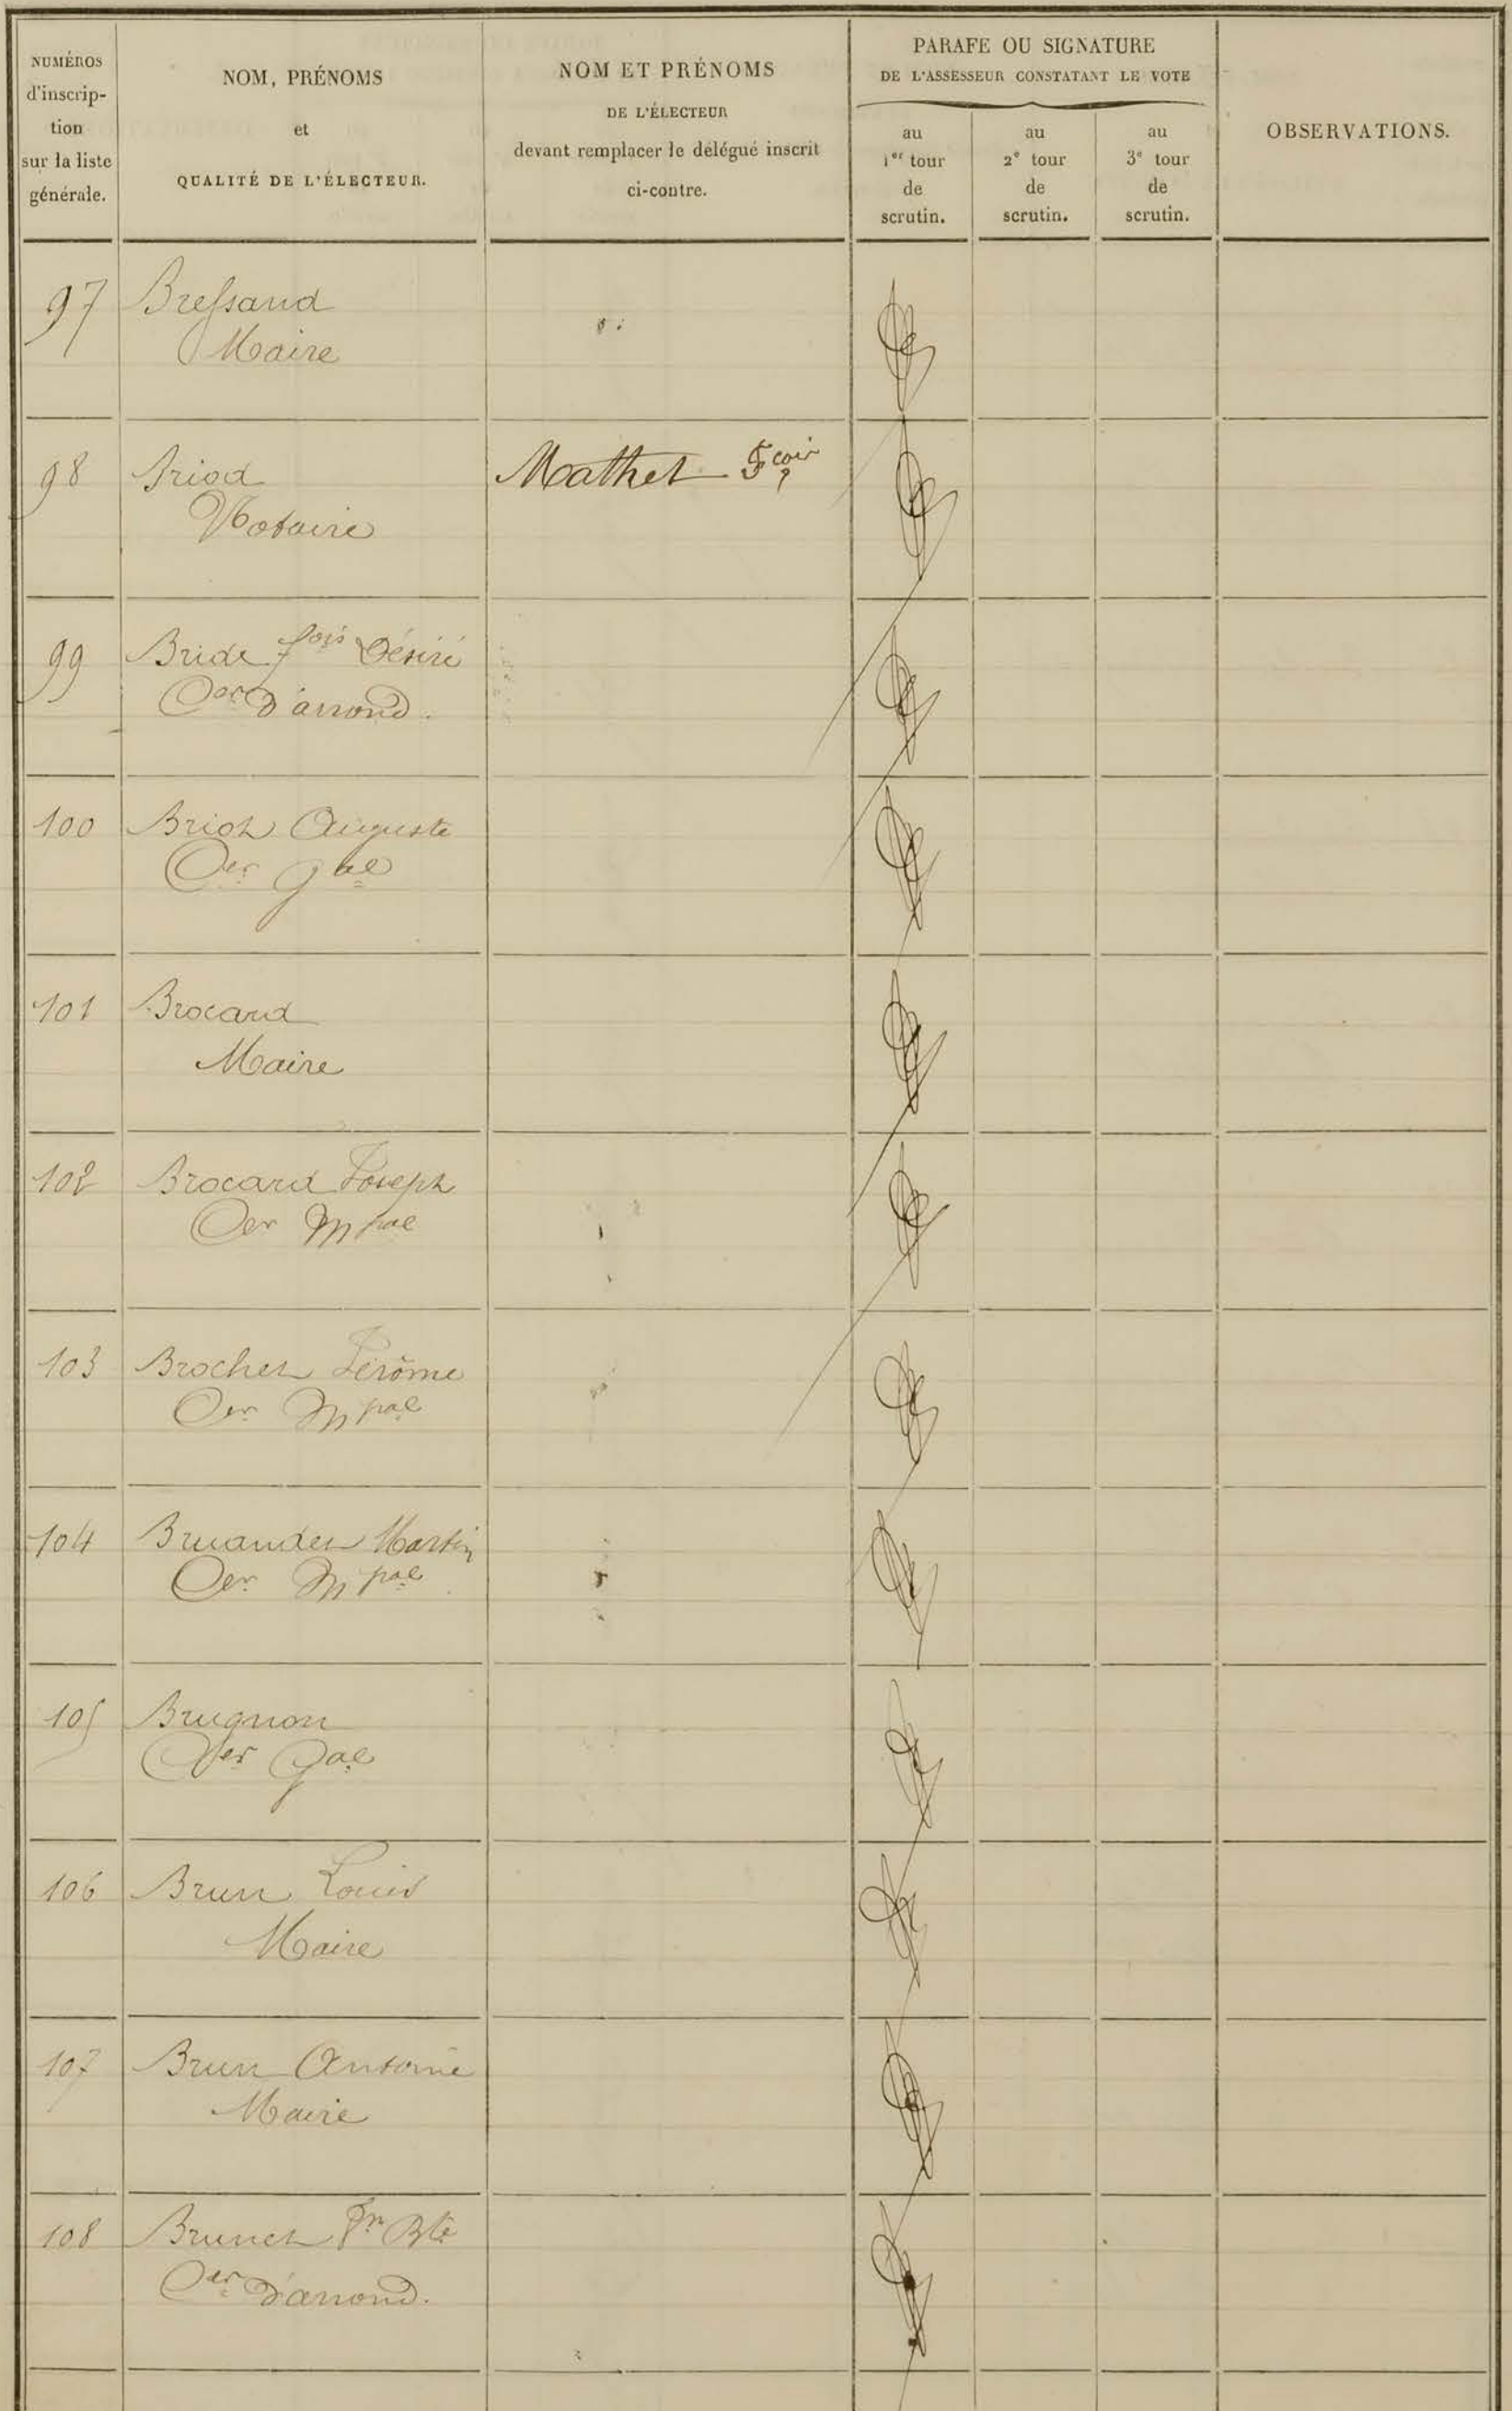 NUMÉROS
d'inscrip-
tion
sur la liste
générale.
NOM, PRÉNOMS
et
QUALITÉ DE L'ÉLECTEUR.
NOM ET PRÉNOMS
DE L'ÉLECTEUR
devant remplacer le délégué inscrit
ci-contre.
PARAFE OU SIGNATURE
DE L'ASSESSEUR CONSTATANT LE VOTE
au
1er tour
de
scrutin.
au
2e tour
de
scrutin.
au
3e tour
de
scrutin.
OBSERVATIONS.
97 Bressand
Maire
98 Briod Mathet
Notaire
99 Bride fois Désiré
Cer d'arrond.
100 Briot Auguste
Cer Gal
101 Brocard
Maire
102 Brocard Joseph
Cer Mpal
103 Brochet Jérôme
Cer Mpal
104 Bruandet Martin
Cer Mpal
105 Brugnon
Cer Gal
106 Brun Louis
Maire
107 Brun Antoine
Maire
108 Brunet Jn Bte
Cer d'arrond.